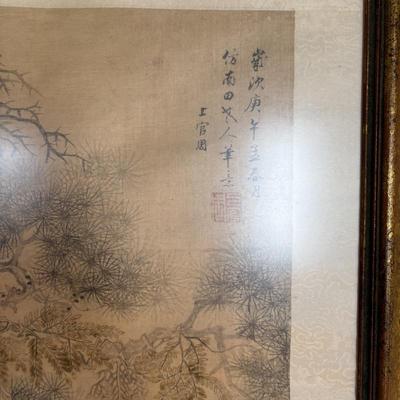 歲次庚午孟春月
仿南田老人筆意
上官周